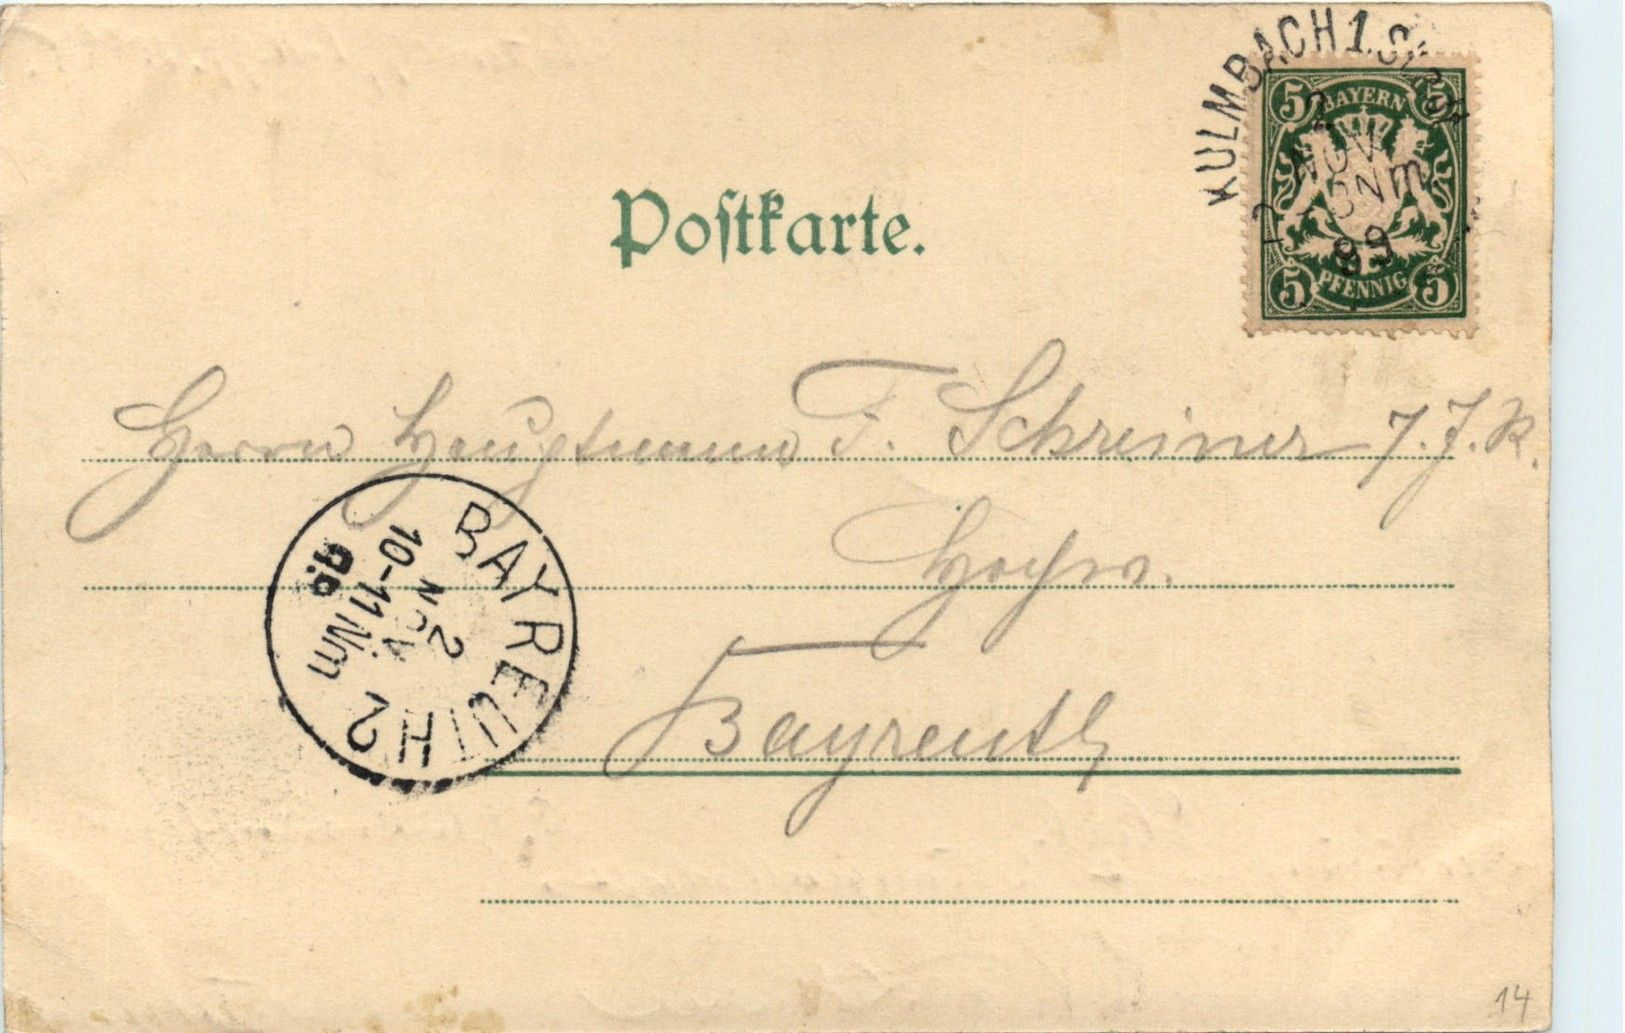 KULMBACH 1.
2
NOV
Nm
99
5 BAYERN 5
5 PFENNIG 5
Postkarte.
Herrn Hauptmann F. Schreiner 7. J. R.
Hochw.
Bayreuth
BAYREUTH 2
2 NOV
10-11 Nm
14